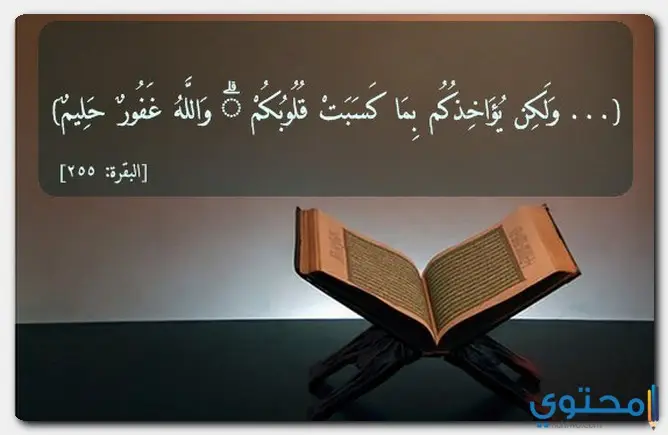 (... وَلَكِن يُؤَاخِذُكُم بِمَا كَسَبَتْ قُلُوبُكُمْ ۗ وَاللَّهُ غَفُورٌ حَلِيمٌ)
[البقرة: ٢٥٥]
محتوي